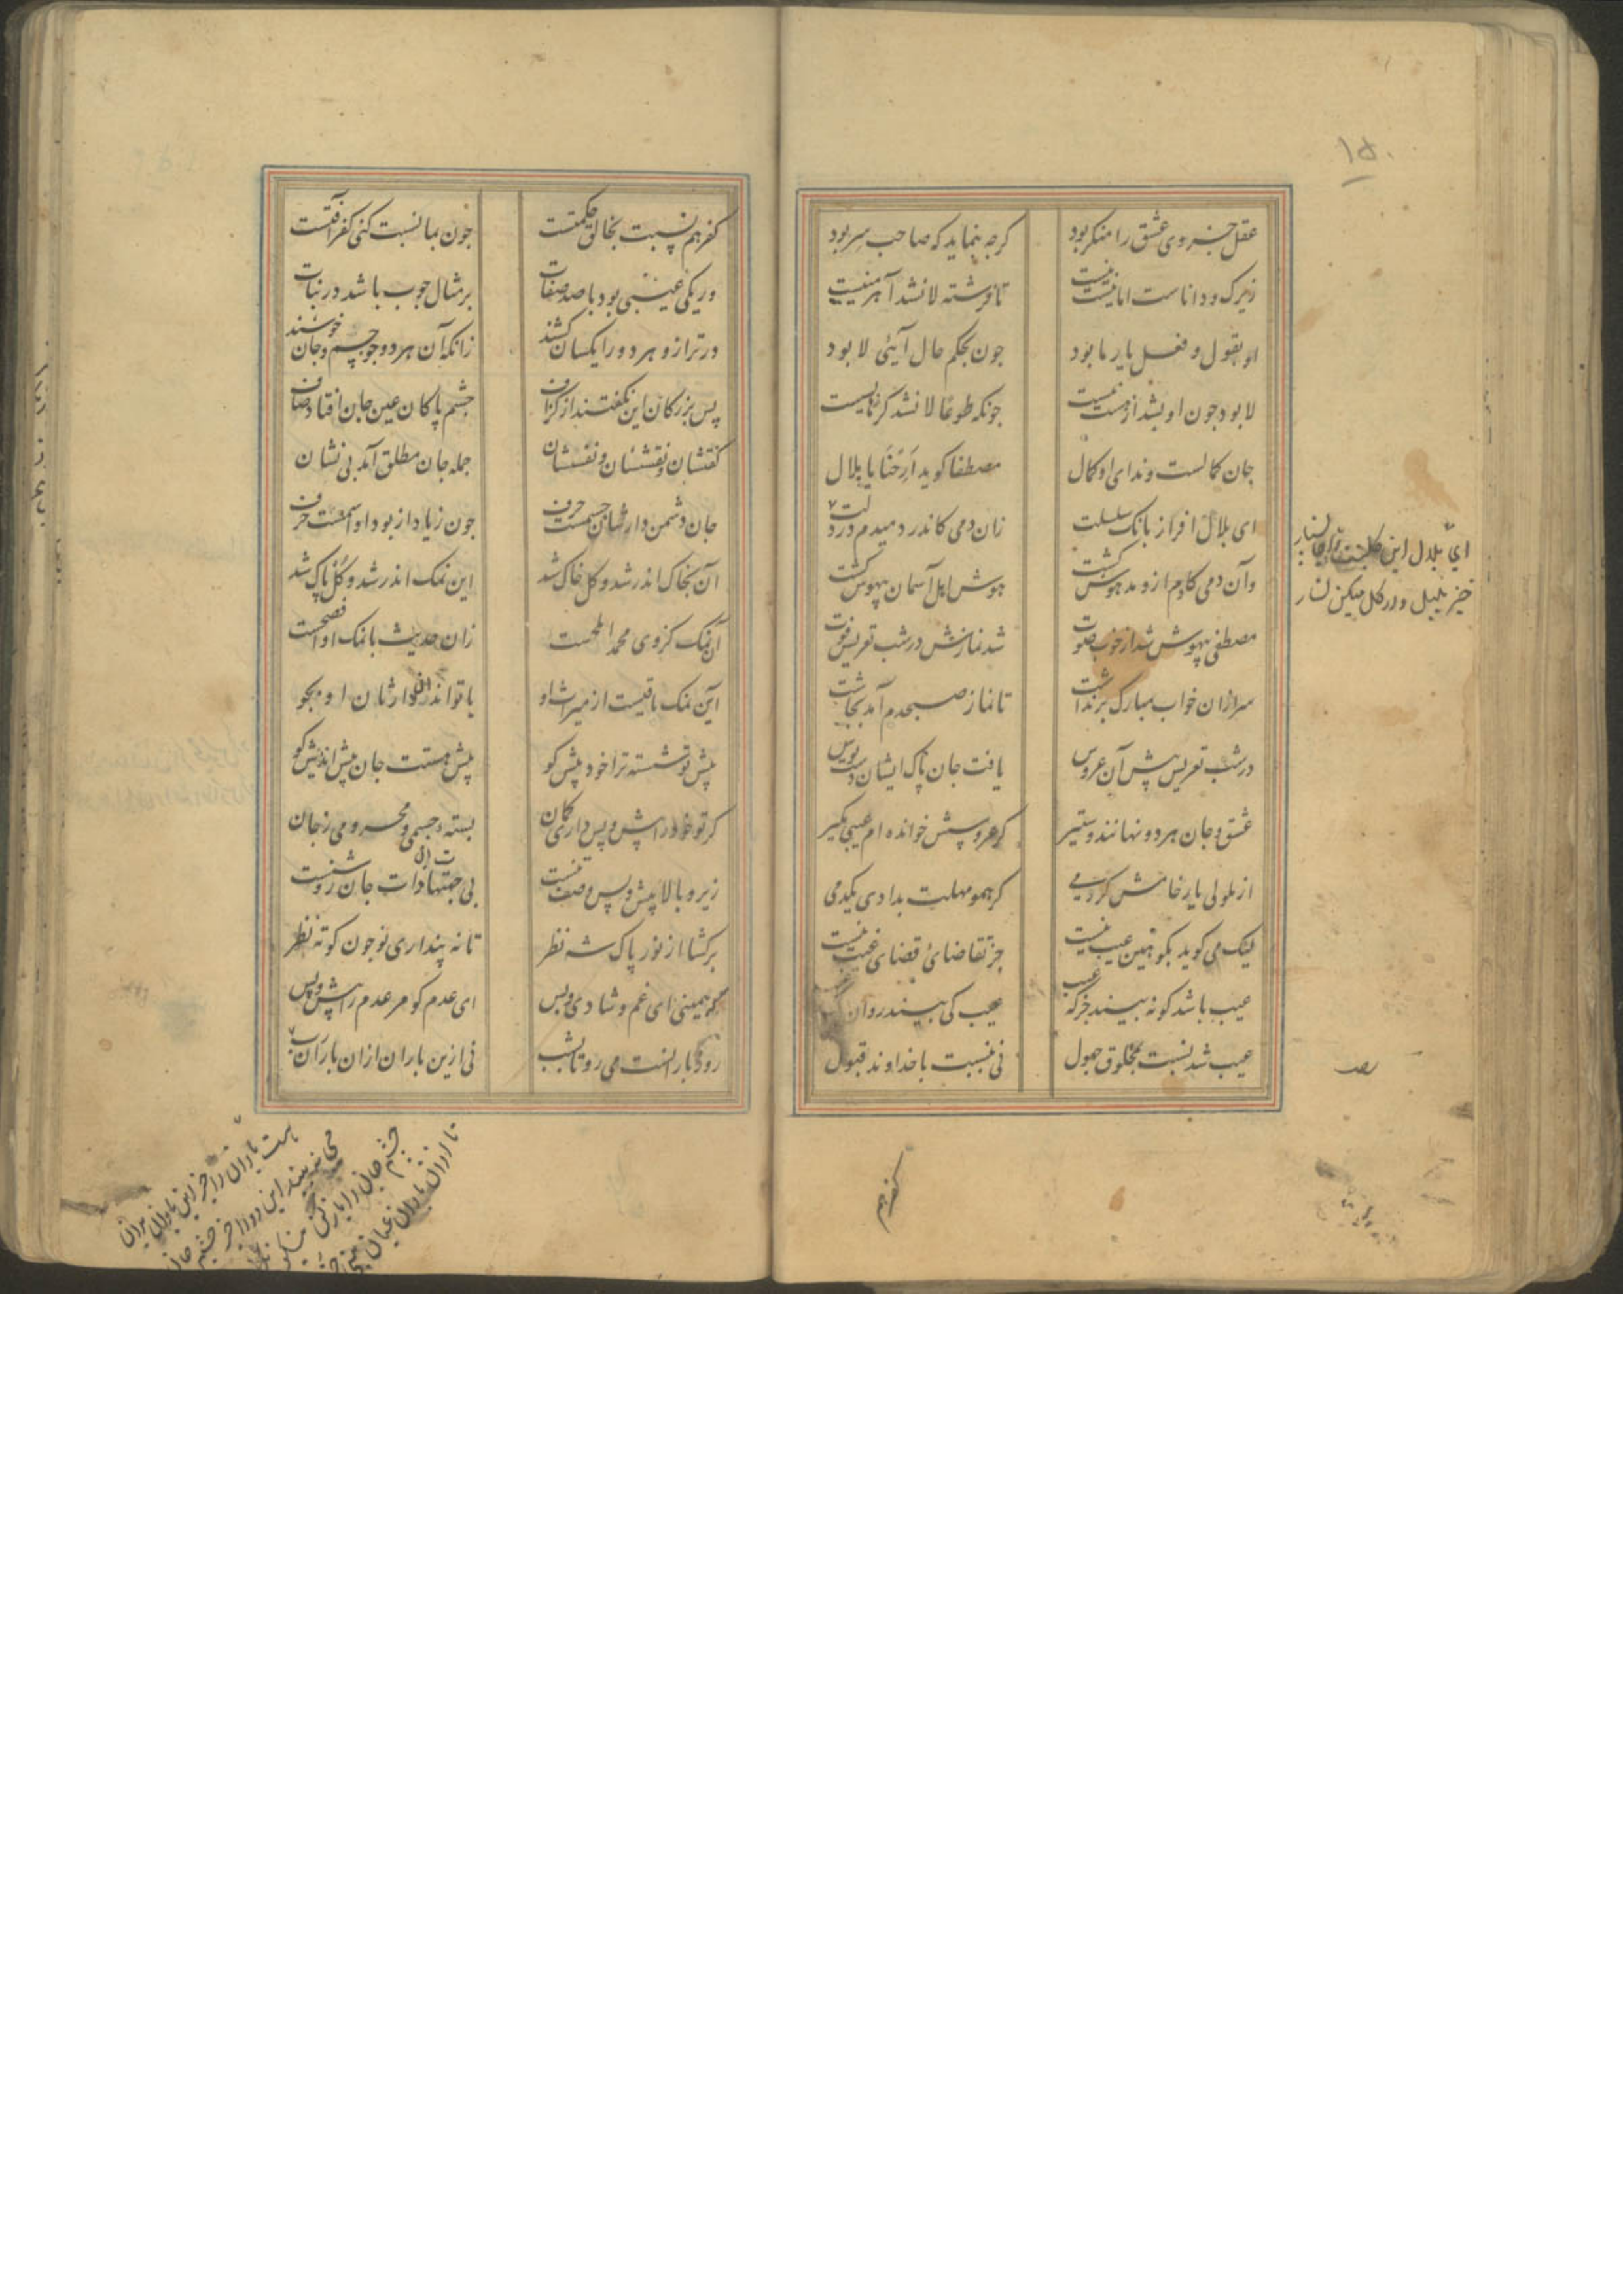 ۱۵۰
عقل جزوی عشق را منکر بود کرچه بنماید که صاحب سر بود
زیرک و داناست اما نیست نیست تا فرشته لا نشد آهرمنیست
او بقول و فعل یار ما بود چون بحکم حال آیی لا بود
لا بود چون او نشد از هست نیست چونکه طوعا لا نشد کرها بسیست
جان کمالست و ندای او کمال مصطفا کوید اَرِحْنَا یا بلال
ای بلال افراز بانک سلسلت زان دمی کاندر دمیدم در دلت
وآن دمی کادم ازو مدهوش کشت هوش اهل آسمان بیهوش کشت
مصطفی بیهوش شد زان خوب صوت شد نمازش در شب تعریس فوت
سر ازان خواب مبارک برنداشت تا نماز صبحدم آمد بچاشت
در شب تعریس پیش آن عروس یافت جان پاک ایشان دست بوس
عشق و جان هر دو نهانند و ستیر کر عروسش خوانده ام عیبی مکیر
از ملولی یار خامش کردمی کر همو مهلت بدادی یکدمی
لیک می کوید بکو هین عیب نیست جز تقاضای قضای غیب نیست
عیب باشد کو نه بیند جز که عیب عیب کی بیند روان
عیب شد نسبت بمخلوق جهول نی بنسبت با خداوند قبول
ای بلال این
خیز بلبل وار کل میکن نثار
کفر هم
کفر هم نسبت بخالق حکمتست چون بما نسبت کنی کفر آفتست
ور یکی عیبی بود با صد صفات بر مثال چوب باشد در نبات
در ترازو هر دو را یکسان کشند زانکه آن هر دو چو جسم و جان خوشند
پس بزرکان این نکفتند از کزاف جسم پاکان عین جان افتاد صاف
کفتشان و نقششان و نفسشان جمله جان مطلق آمد بی نشان
جان دشمن دارشان جسمست صرف چون زیاد از نرد او اسمست صرف
آن بخاک اندر شد و کل خاک شد این نمک اندر شد و کل پاک شد
آن نمک کز وی محمد املحست زان حدیث با نمک او افصحست
این نمک باقیست از میراث او با تواند آن وارثان او بجو
پیش تو شسته ترا خود پیش کو پیش هستت جان پیش اندیش کو
کر تو خود را پیش و پس داری کمان بسته جسمی و محرومی ز جان
زیر و بالا پیش و پس وصف تنست بی جهتها ذات جان روشنست
برکشا از نور پاک شه نظر تا نه پنداری تو چون کوته نظر
که همینی ای غم و شادی و بس ای عدم کو مر عدم را پیش و پس
روز بارانست می رو تا بشب نی ازین باران ازان باران رب
هست باران را جز این باران بدان
می نبیند این را جز چشم جان
چشم جان را
تا ازان باران عیان